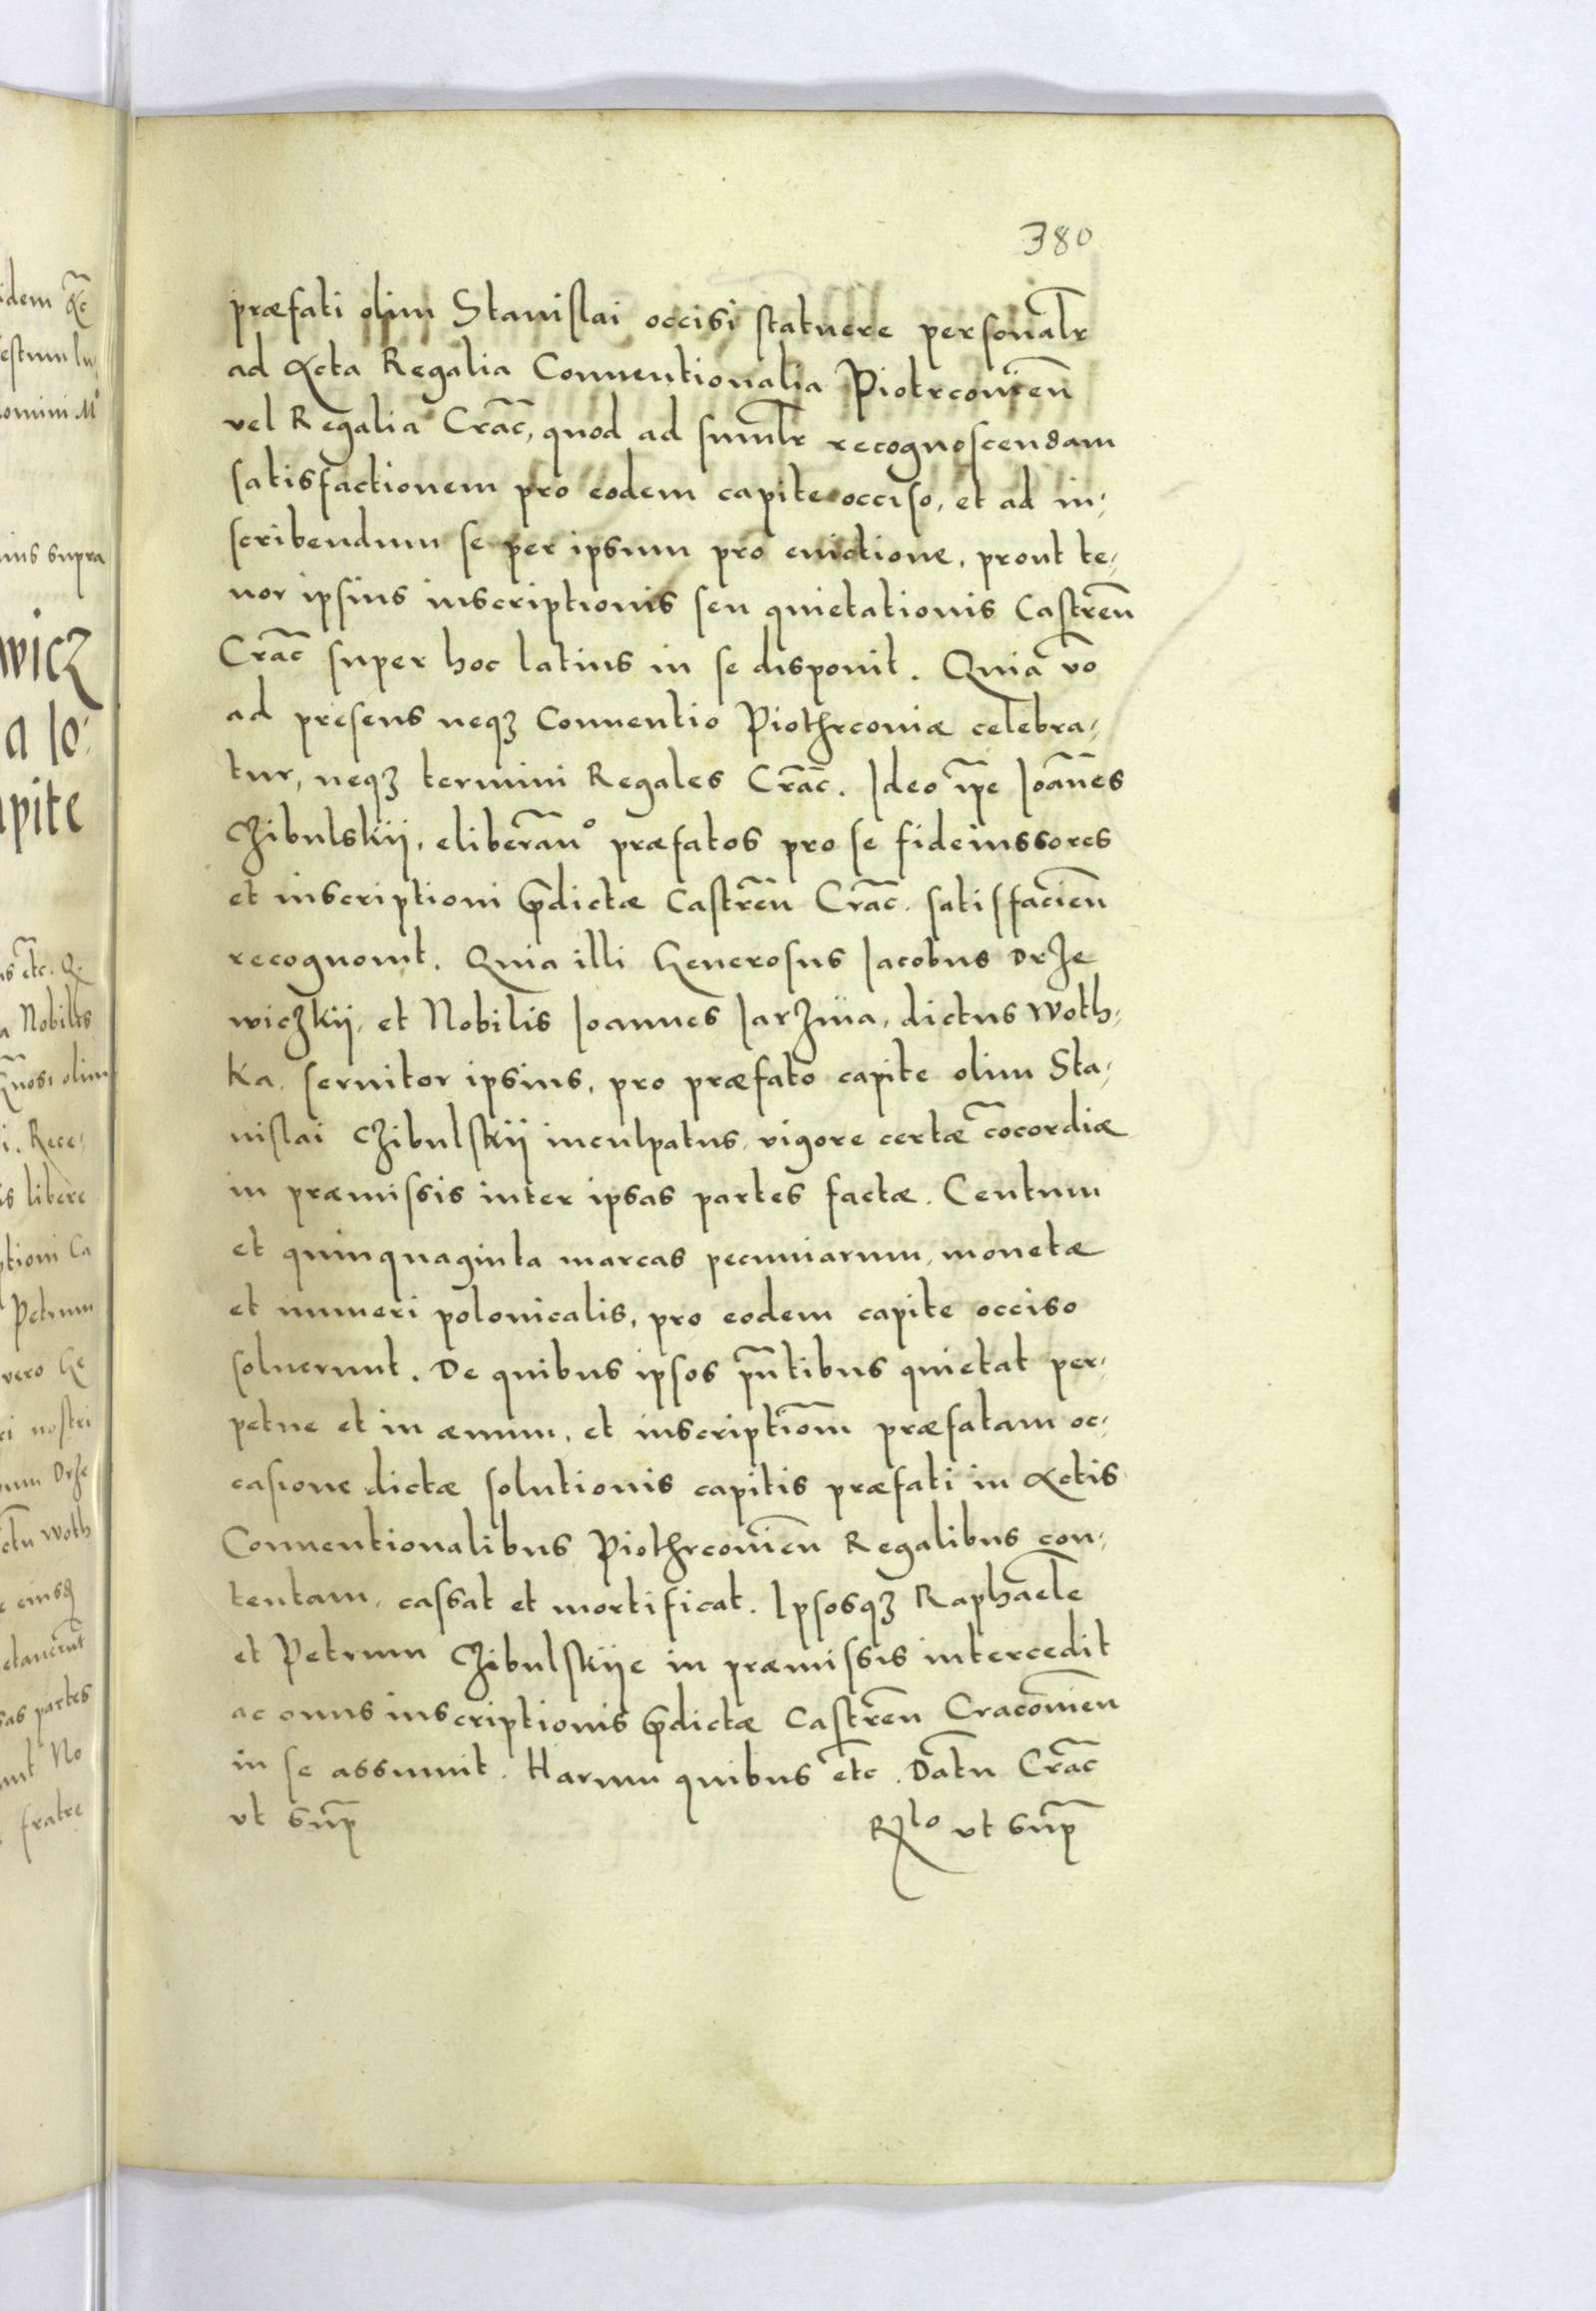 380
præfati olim Stanislai occisi statuere personalr̃
ad Acta Regalia Conuentionalia Piotrconien̄
vel Regalia Crac̄, quod ad simulr̃ recognoscendam
satisfactionem pro eodem capite occiso, et ad in⸗
scribendum se per ipsum pro euictione, prout te⸗
nor ipsius inscriptionis seu quietationis Castren̄
Crac̄ super hoc latius in se disponit. Quia vō
ad presens neqꝫ Conuentio Piothrconiæ celebra⸗
tur, neqꝫ termini Regales Crac̄. Ideo ip̄e Joān̄es
Czibulskij, eliberan̄º præfatos pro se fideiussores
et inscriptioni p̄dictæ Castren̄ Crac̄. satisfacien̄
recognouit. Quia illi Generosus Jacobus Drze
wiczkij, et Nobilis Joannes Jarzina, dictus Woth⸗
ka, seruitor ipsius, pro præfato capite olim Sta⸗
nislai Czibulskij inculpatus, vigore certæ cōcordiæ
in præmissis inter ipsas partes factæ. Centum
et quinquaginta marcas pecuniarum, monetæ
et numeri polonicalis, pro eodem capite occiso
soluerunt. De quibus ipsos pn̄tibus quietat per⸗
petue et in æuum, et inscriptiōm præfatam oc⸗
casione dictæ solutionis capitis præfati in Actis
Conuentionalibus Piothrconien̄ Regalibus con⸗
tentam, cassat et mortificat. Ipsosqꝫ Raphaelē
et Petrum Czibulskije in præmissis intercedit
ac onus inscriptionis p̄dictæ Castren̄ Cracouien̄
in se assumit. Harum quibus etc̄. Datū Crac̄
vt sup̄ Rlº vt sup̄
idem Ac̄
estum lu
omini Mº
ius supra
wicz
a Jo⸗
pite
us etc̄. Q.
a Nobiles
olim
i. Rece⸗
is libere
ptioni Ca
Petrum
vero Ge
ri nostri
um Drze
Woth
eiusd
sas partes
unt No
fratre